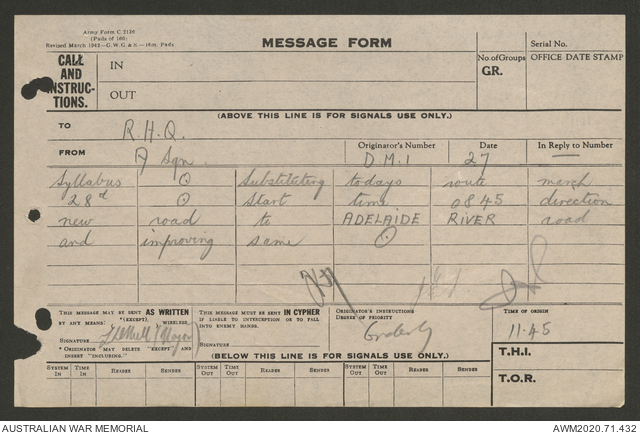 Army Form C 2136
(Pads of 100)
Revised March 1942—G.W.G. & S.—16m. Pads
MESSAGE FORM
Serial No.
CALL AND INSTRUCTIONS.
IN
OUT
No. of Groups
GR.
OFFICE DATE STAMP
(ABOVE THIS LINE IS FOR SIGNALS USE ONLY.)
TO R.H.Q.
FROM A Sqn.
Originator's Number D.M.1
Date 27
In Reply to Number —
Syllabus ⊙ Substituting todays route march
28th ⊙ Start time 0845 direction
new road to ADELAIDE RIVER road
and improving same ⊙
THIS MESSAGE MAY BE SENT AS WRITTEN
BY ANY MEANS: *(EXCEPT), WIRELESS.
SIGNATURE (Major)
*ORIGINATOR MAY DELETE "EXCEPT" AND INSERT "INCLUDING."
THIS MESSAGE MUST BE SENT IN CYPHER
IF LIABLE TO INTERCEPTION OR TO FALL INTO ENEMY HANDS.
SIGNATURE
ORIGINATOR'S INSTRUCTIONS
DEGREE OF PRIORITY
Orderly
TIME OF ORIGIN
11.45
(BELOW THIS LINE IS FOR SIGNALS USE ONLY.)
T.H.I.
T.O.R.
SYSTEM IN TIME IN READER SENDER SYSTEM OUT TIME OUT READER SENDER SYSTEM OUT TIME OUT READER SENDER
AUSTRALIAN WAR MEMORIAL
AWM2020.71.432